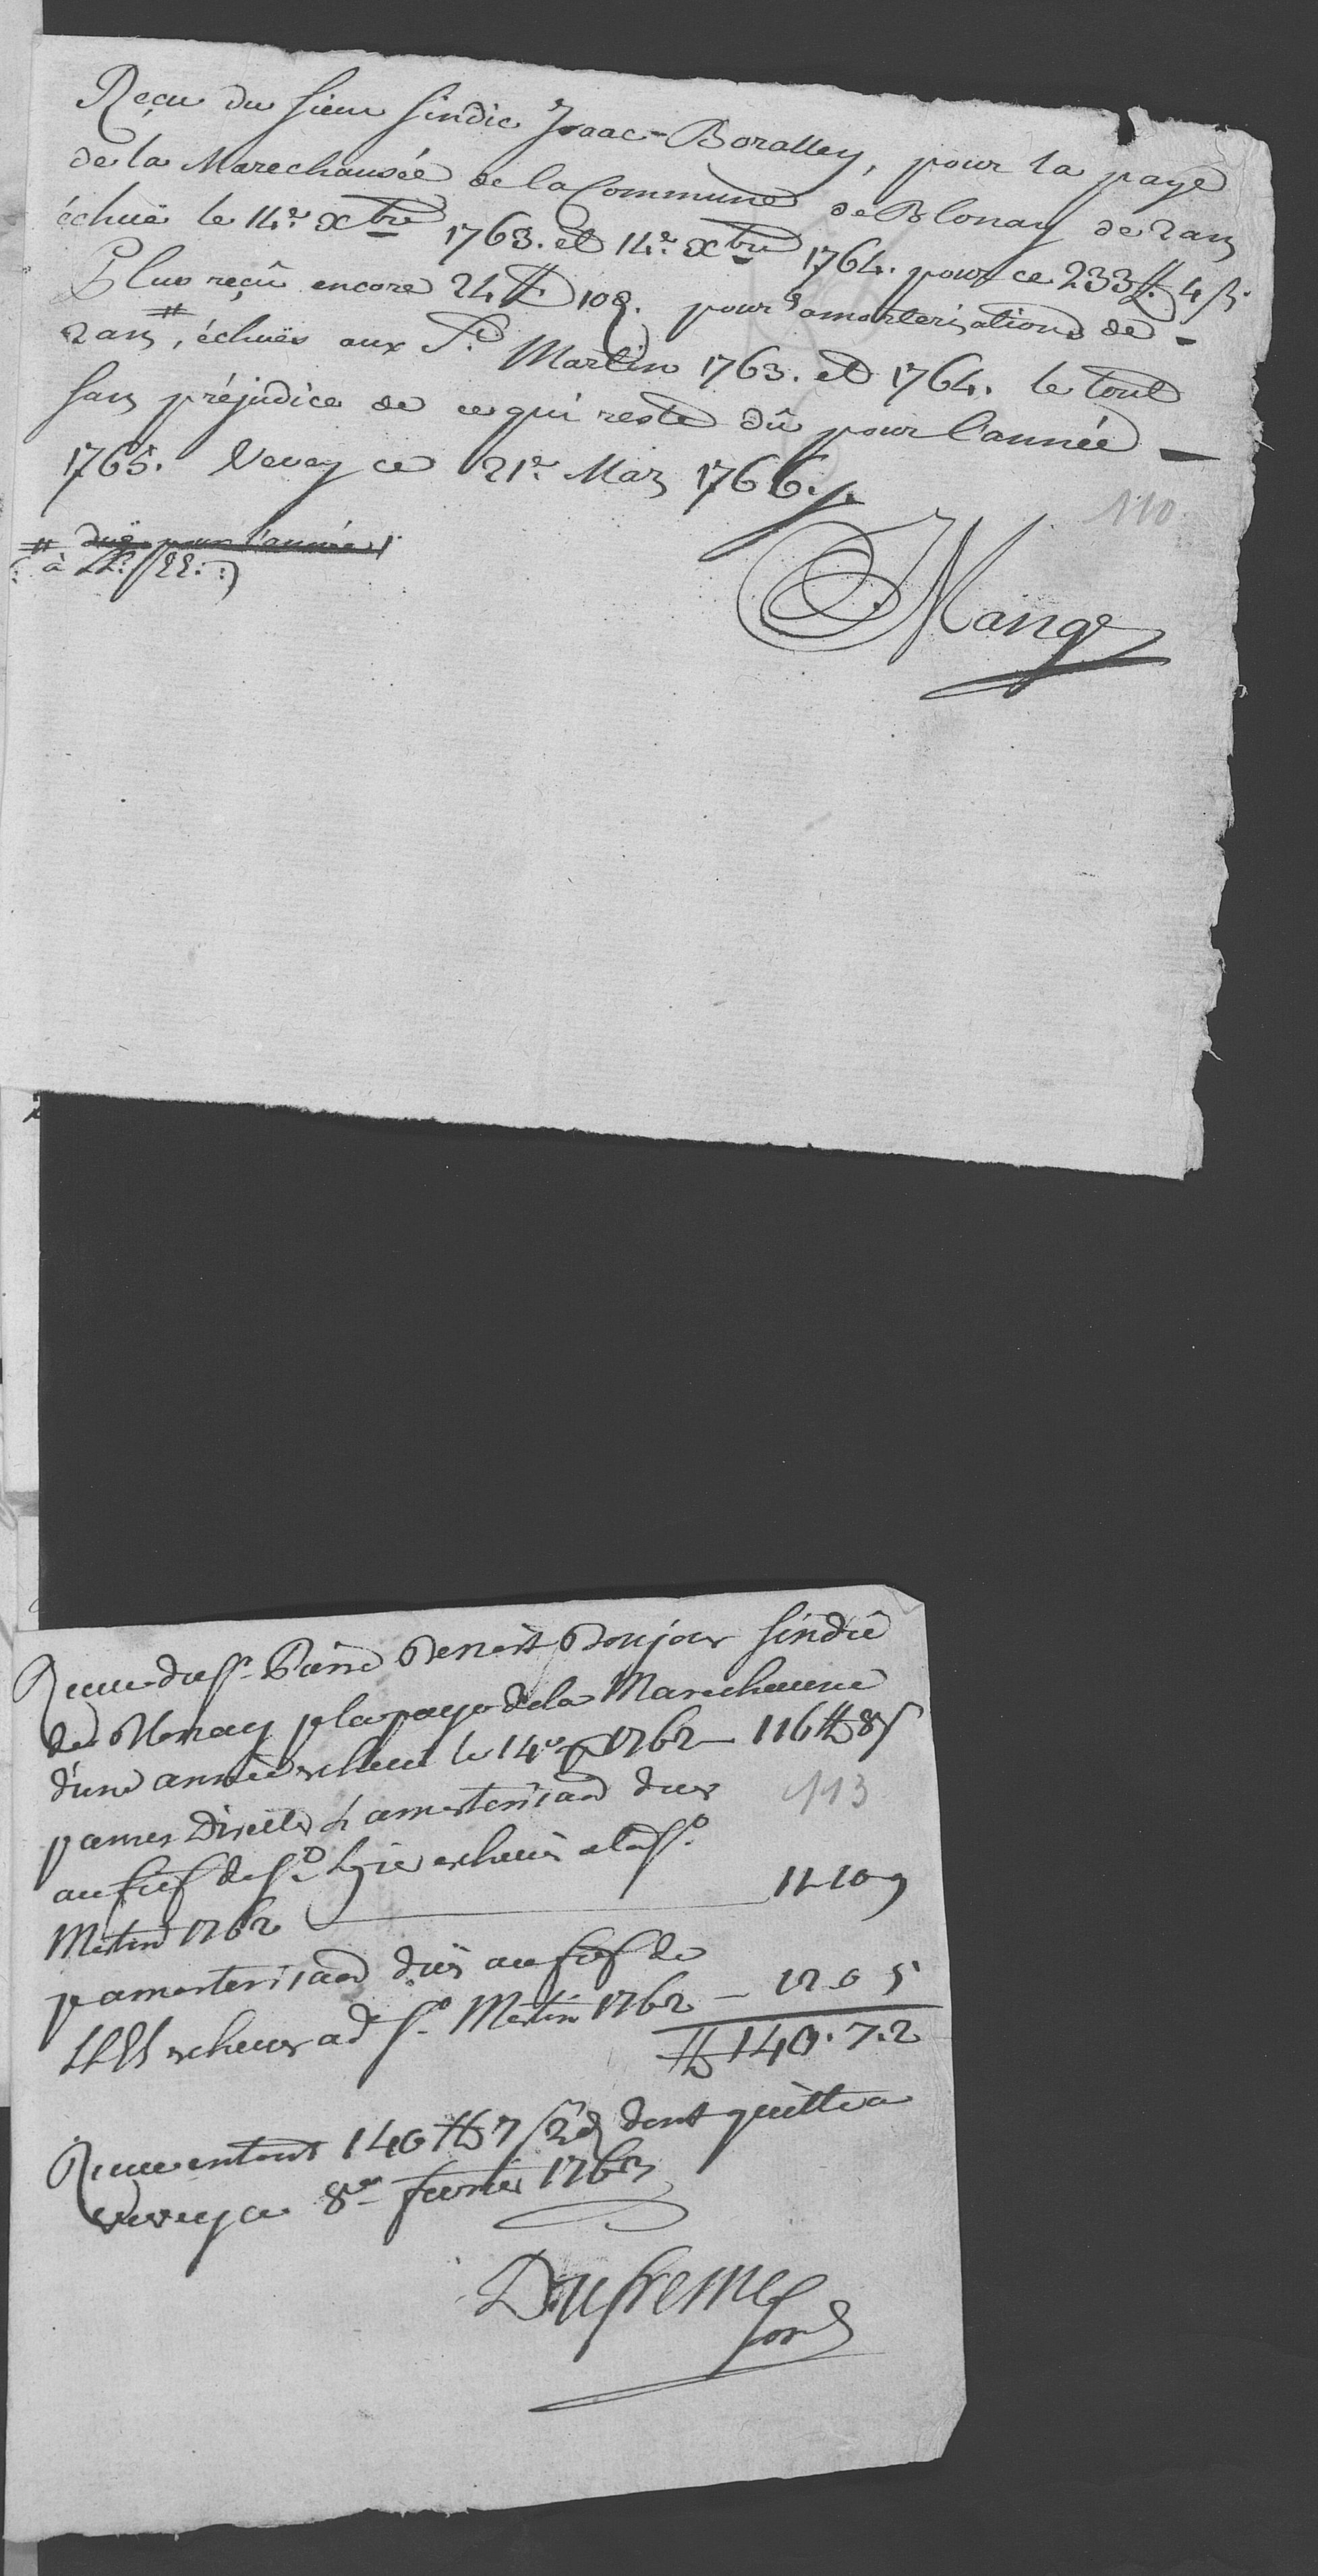 Reçu du sieur sindic Isaac-Boralley, pour la paye
de la Marechausée de la Commune de Blonay de 2 ans
échuë le 14.e Xbre 1763. et 14.e Xbre 1764. pour ce 233 ff. 4 ß.
Plus reçû encore 24 ff 10 d. pour amorterisations de -
2 ans, # échuës aux St. Martin 1763. et 1764. le tout
sans préjudice de ce qui reste dû pour l'année —
1765. Vevey ce 21.e Mars 1766.
110.
# duë pour l'année
(: à LL. EE. :)
Mange
Receu du Sr. Pierre Benoit Bonjour sindic
de Blonay p la paye de la Marechaussee
d'une année escheue le 14e 1762 — 116 ff 8 s
113
p amorterisaon dues
au fief de St. escheues a la St.
Martin 1762 — 11-10 9
p amorterisaon düe au fief de
LLEE escheues a la St. Martin 1762 — 12 0 5
ff 140.7.2
Receu en tout 140 ff 7 s 2 d dont quittance
Vevey ce 8e fevrier 1763
Dufresne